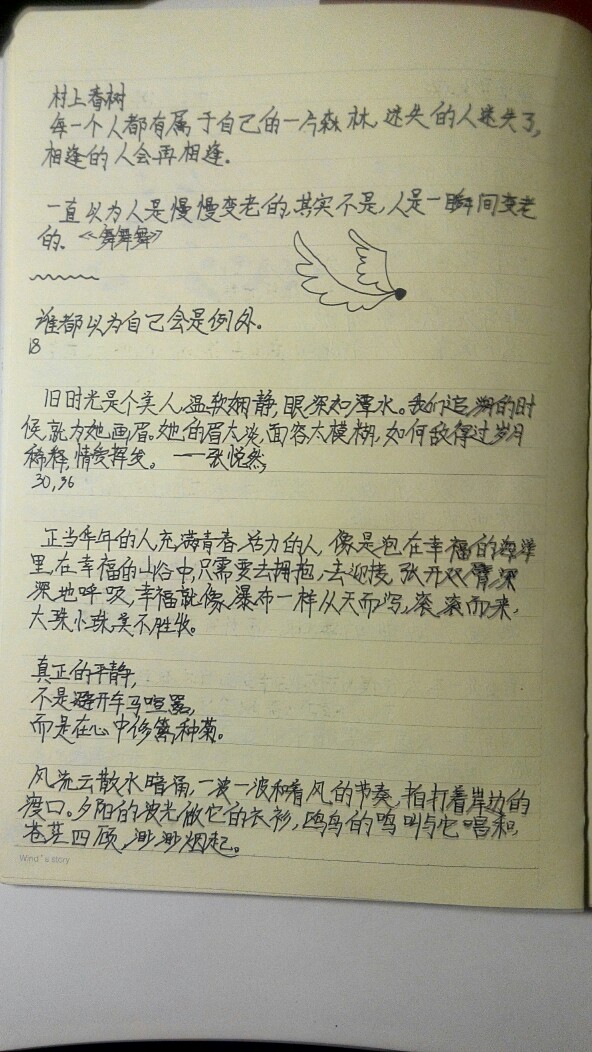 村上春树
每一个人都有属于自己的一片森林,迷失的人迷失了,
相逢的人会再相逢.
一直以为人是慢慢变老的,其实不是,人是一瞬间变老
的.《舞舞舞》
谁都以为自己会是例外。
18
旧时光是个美人,温软娴静,眼深如潭水。我们追溯的时
候,就为她画眉。她的眉太淡,面容太模糊,如何敌得过岁月
稀释,情爱挥发。——张悦然,
30,36
正当华年的人,充满青春活力的人,像是泡在幸福的海洋
里,在幸福的山谷中,只需要去拥抱,去迎接,张开双臂深
深地呼吸,幸福就像瀑布一样从天而泻,滚滚而来,
大珠小珠,美不胜收。
真正的平静,
不是避开车马喧嚣,
而是在心中修篱种菊。
风流云散水暗涌,一波一波和着风的节奏,拍打着岸边的
渡口。夕阳的波光做它的衣衫,鸥鸟的鸣叫与它唱和,
苍茫四顾,渺渺烟起。
Wind's story